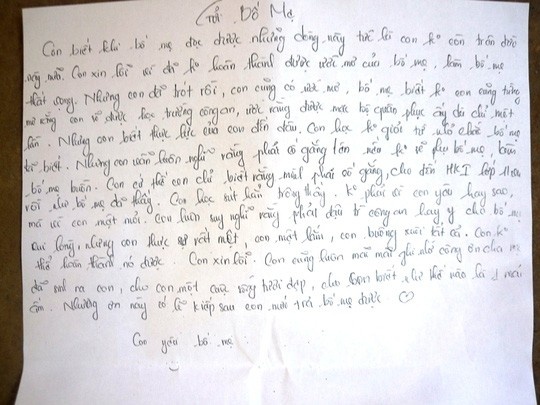 Gửi Bố Mẹ.
Con biết khi bố mẹ đọc được những dòng này tức là con ko còn trên đời
này nữa. Con xin lỗi vì đã ko hoàn thành được ước mơ của bố mẹ, làm bố mẹ
thất vọng. Nhưng con đã trót rồi, con cũng có ước mơ, bố mẹ biết ko con cũng từng
mơ rằng con sẽ được học trường công an, ước rằng được mặc bộ quân phục ấy dù chỉ một
lần. Nhưng con biết thực lực của con đến đâu. Con học ko giỏi từ nhỏ chắc bố mẹ
đã biết. Nhưng con luôn luôn nghĩ rằng phải cố gắng lên nếu ko sẽ phụ bố mẹ, làm
bố mẹ buồn. Con cứ thế con chỉ biết rằng mình phải cố gắng, cho đến HKI lớp
rồi như bố mẹ đã thấy. Con học sút hẳn trông thấy. ko phải vì con yêu hay sao,
mà vì con mệt mỏi. Con luôn suy nghĩ rằng phải đậu trg công an hay y cho bố mẹ
vui lòng, nhưng con thực sự rất mệt, con mệt lắm, con buông xuôi tất cả. Con ko
thể hoàn thành nó được. Con xin lỗi. Con cũng luôn mãi mãi ghi nhớ công ơn cha mẹ
đã sinh ra con, cho con một cuộc sống tươi đẹp, cho con biết như thế nào là 1 mái
ấm. Nhưng ơn này có lẽ kiếp sau con mới trả bố mẹ được ♡
Con yêu bố mẹ.